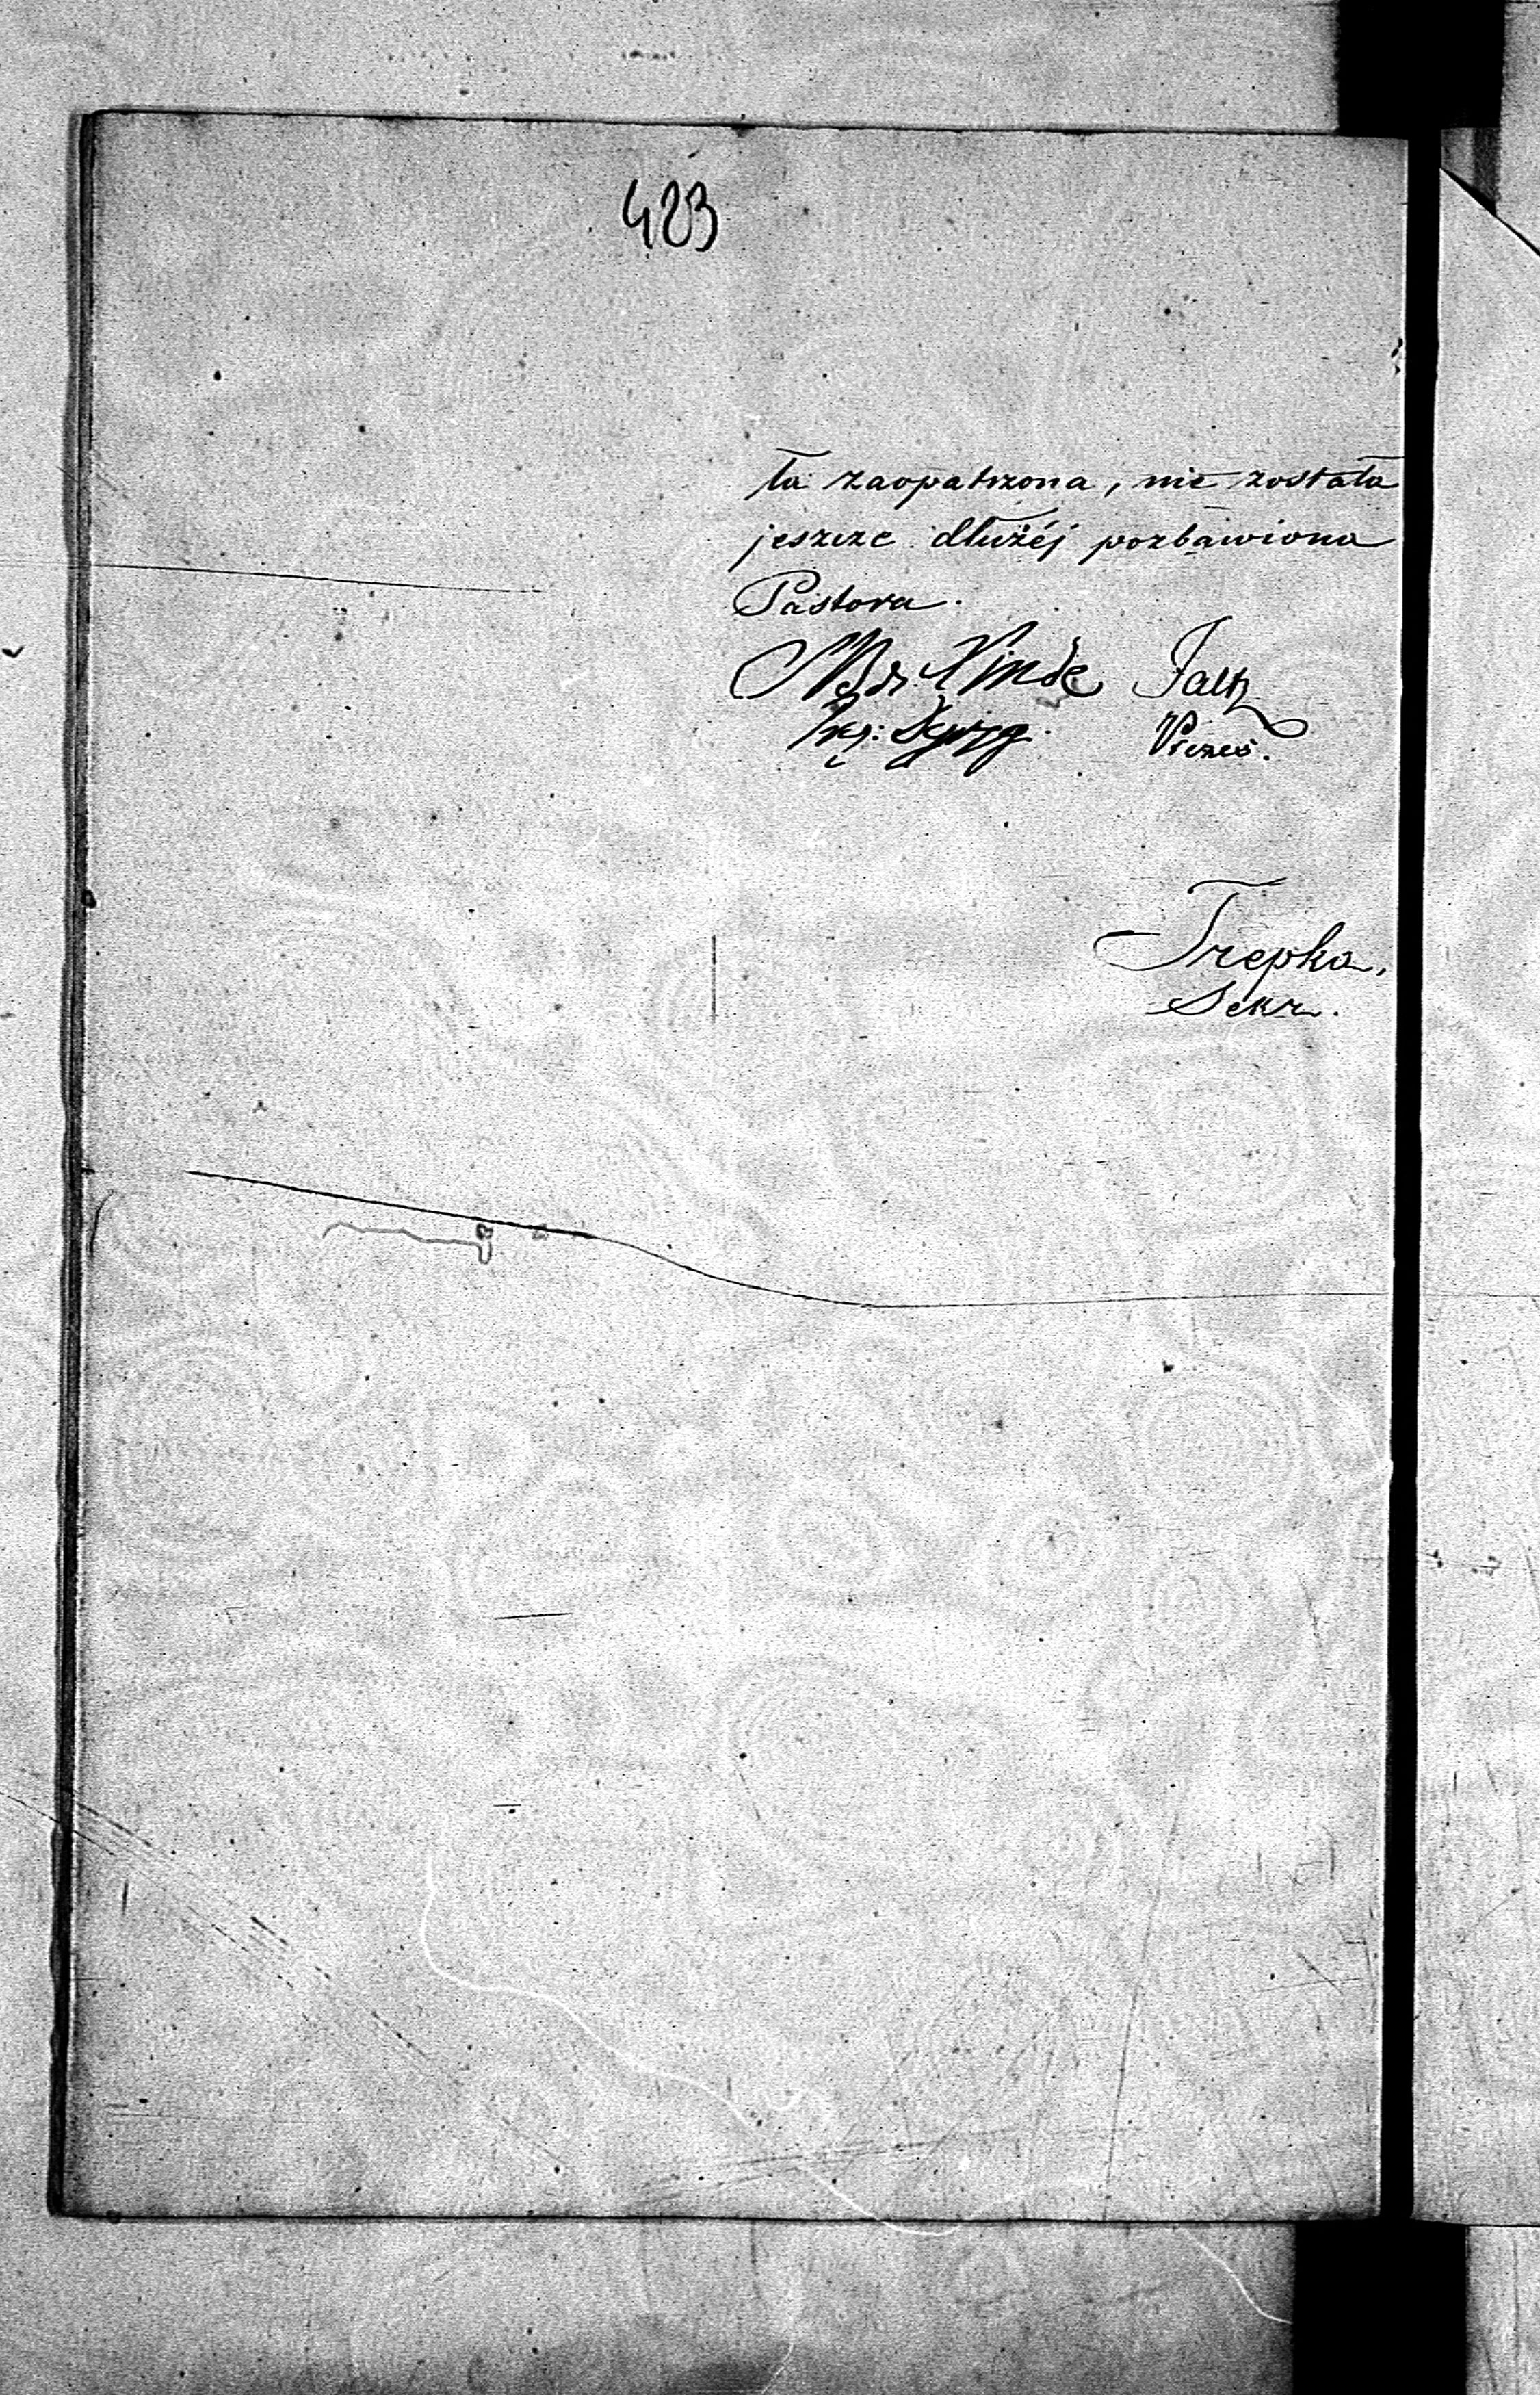 423
ta zaopatrzona, nie została
jeszcze dłużéj pozbawiona
Pastora.
Linde Faltz
Prezes.
Trepka,
Sekr.